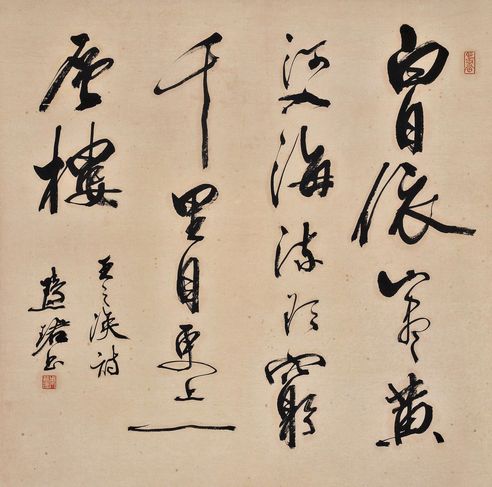 白日依山盡黃
河入海流欲窮
千里目更上一
層樓
王之渙詩
慧珺書